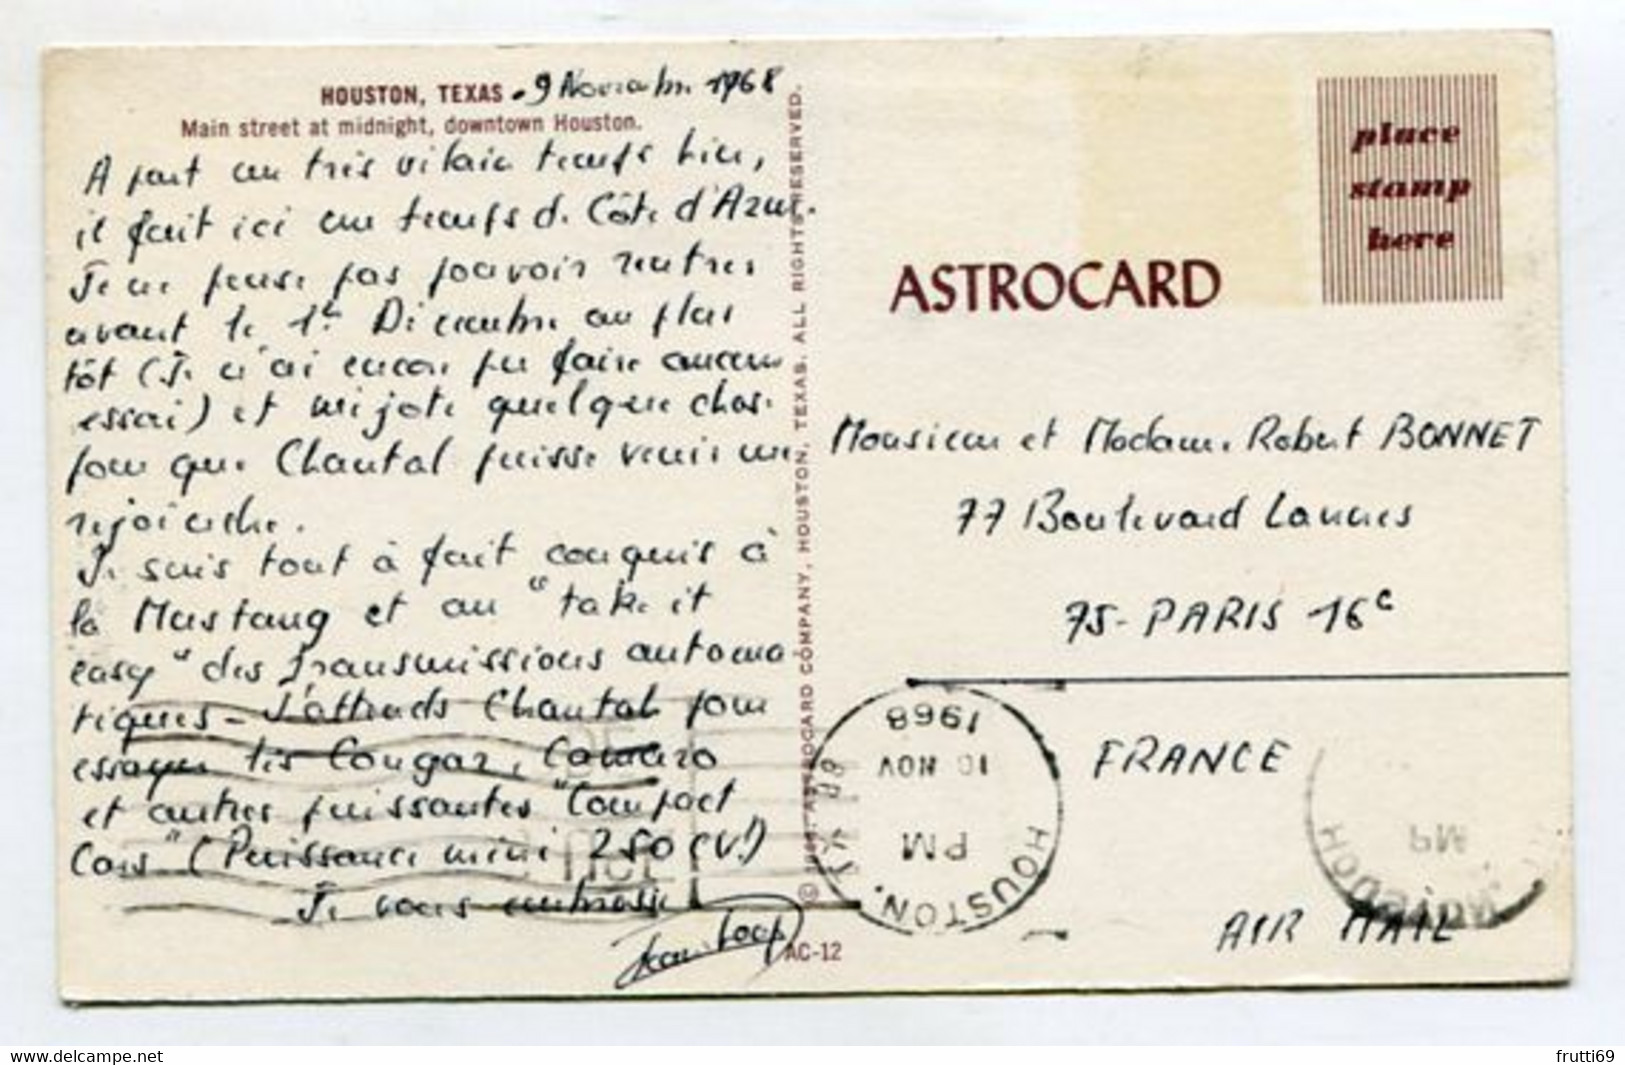 HOUSTON, TEXAS . 9 Novembre 1968
Main street at midnight, downtown Houston.
A part un très vilain temps hier,
il fait ici un temps de Côte d'Azur.
Je ne pense pas pouvoir rentrer
avant le 1er Décembre au plus
tôt (Je n'ai encore pu faire aucun
essai) et mijote quelque chose
pour que Chantal puisse venir me
rejoindre.
Je suis tout à fait conquis à
la Mustang et au "take it
easy" des transmissions automa
tiques - J'attends Chantal pour
essayer les Cougar, Camaro
et autres puissantes "Compact
Cars" (Puissance mini 250 CV!)
Je vous embrasse
AC-12
© ASTROCARD COMPANY, HOUSTON, TEXAS. ALL RIGHTS RESERVED.
place
stamp
here
ASTROCARD
Monsieur et Madame Robert BONNET
77 Boulevard Lannes
75-PARIS 16e
FRANCE
AIR MAIL
HOUSTON,
PM
10 NOV
1968
PM
frutti69
www.delcampe.net